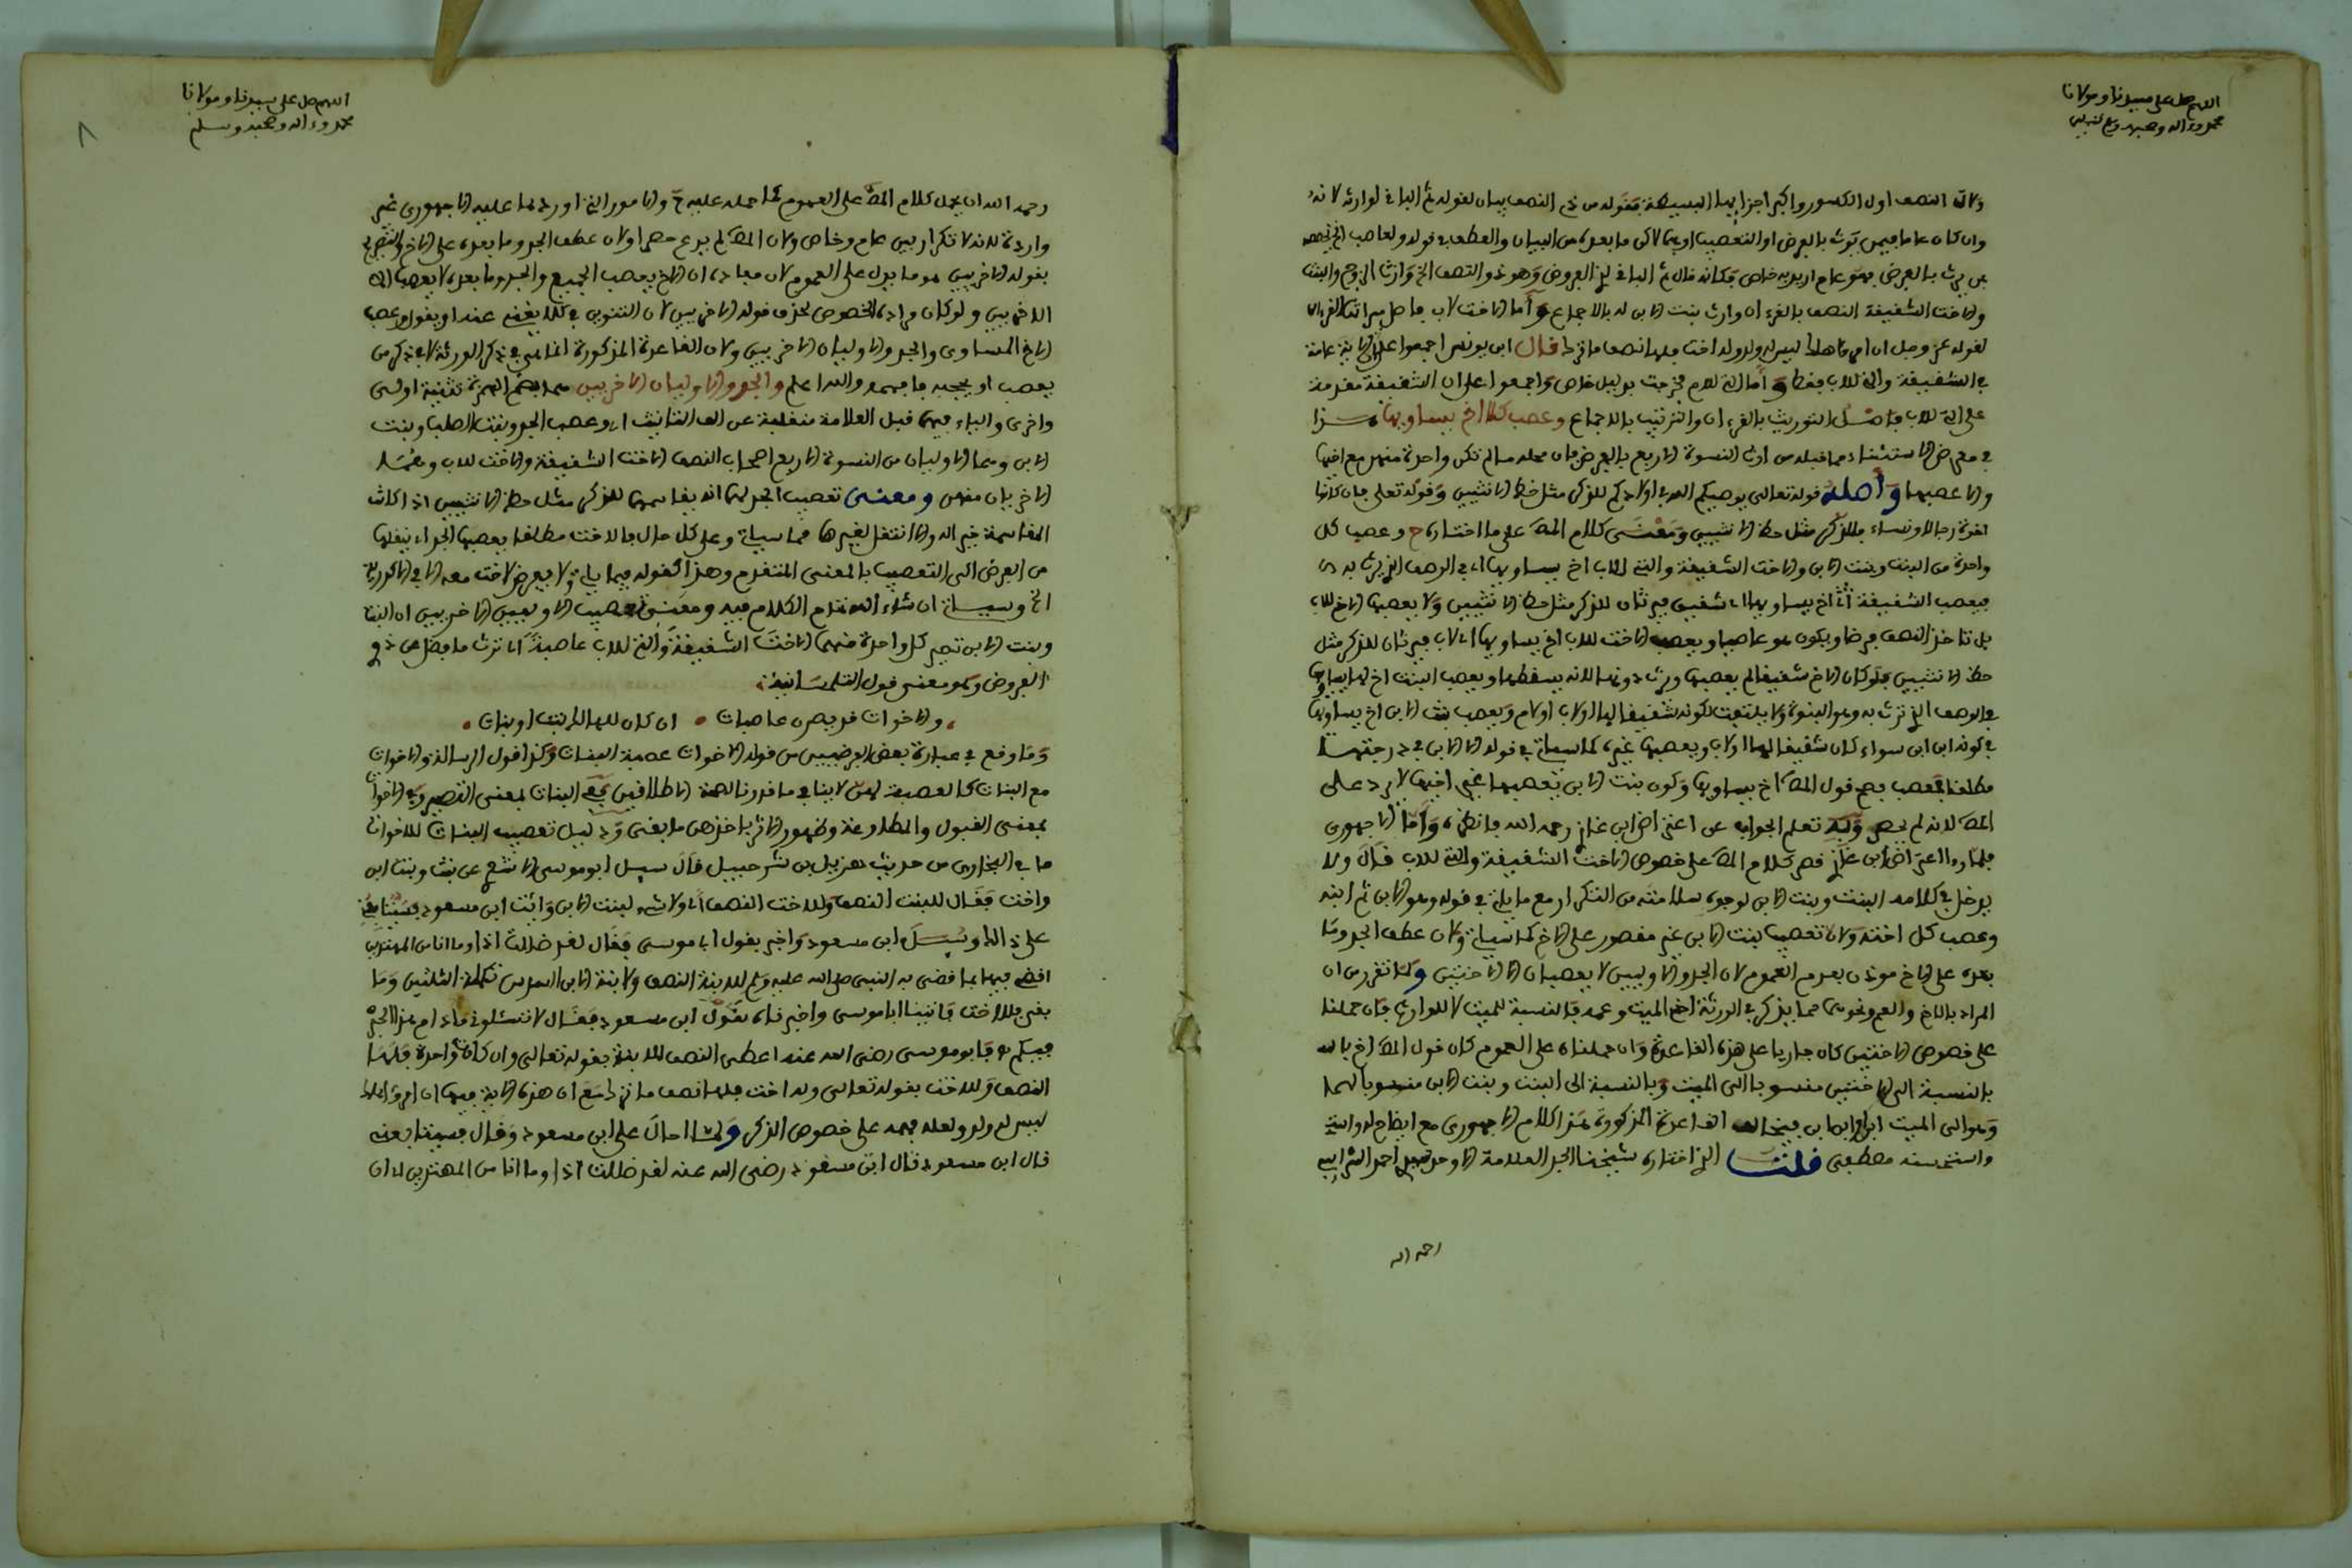 اللهم صل على سيدنا ومولانا
محمد وءاله وصحبه وسلم
ولان النصف اول الكسور واكبر اجزائها البسيطة فقوله من ذي النصف بيان لقوله ثم الباقي لوارثه لانه
وان كان عاما فيمن يرث بالفرض او التعصيب او بهما لاكن ما بعده من البيان والعطف في قوله ولعاصب
من يرث بالفرض فهو عام اريد به خاص فكانه قال ثم الباقي لذي الفروض وهو ذو النصف الخ وارث الزوج والبنت
والاخت الشقيقة النصف بالقرءان وارث بنت الابن له بالاجماع وأما الاخت لاب فاصل ميراثها القرءان
لقوله عز وجل ان امرؤ هلك ليس له ولد وله اخت فلها نصف ما ترك قال ابن يونس اجمعوا على ان الاية عامة
في الشقيقة والتي للاب فقط وأما التي للام فخرجت بدليل خاص واجمعوا على ان الشقيقة مقدمة
على التي للاب فاصل التوريث بالقرءان والترتيب بالاجماع وعصب كلا اخ يساويها هذا
في معرض الاستثناء مما قبله من ارث النسوة الاربع بالفرض فان محله ما لم تكن واحدة منهن مع اخيها
والا عصبها وأصله قوله تعالى يوصيكم الله في اولادكم للذكر مثل حظ الانثيين وقوله تعلى فان كانوا
اخوة رجالا ونساء فللذكر مثل حظ الانثيين ومعنى كلام المص على ما اختاره ح وعصب كل
واحدة من البنت وبنت الابن والاخت الشقيقة والتي للاب اخ يساويها اي في الوصف الذي يرث به
فيعصب الشقيقة اخ يساويها اي شقيق فيرثان للذكر مثل حظ الانثيين ولا يعصبها الاخ للاب
بل تاخذ النصف فرضا ويكون هو عاصبا ويعصب الاخت للاب اخ يساويها اي لاب فيرثان للذكر مثل
حظ الانثيين فلو كان الاخ شقيقا لم يعصبها ويرث دونها لانه يسقطها ويعصب البنت اخ لها يساويها
في الوصف الذي ترث به وهو البنوة ولا يلتفت لكونه شقيقا لها او لاب او لام ويعصب بنت الابن اخ يساويها
في كونه ابن ابن سواء كان شقيقا لها او لاب ويعصبها غيره كما سياتي في قوله الا الابن في درجتها
مطلقا فعصب فصح قول المص اخ يساويها وكون بنت الابن تعصيبها بغير اخيها لا يرد على
المص لانه لم يحصر وبه تعلم الجواب عن اعتراض ابن غازي رحمه الله فانظره وأما الاجهوري
فلما ردا اعتراض ابن غازي قصر كلام المص على خصوص الاخت الشقيقة والتي للاب قال ولا
يدخل في كلامه البنت وبنت الابن لوجوه سلامته من التكرار مع ما ياتي في قوله وهو الابن ثم ابنه
وعصب كل اخته ولان تعصيب بنت الابن غير مقصور على الاخ كما سياتي ولان عطف الجد وما
بعده على الاخ موذن بعدم العموم لان الجد والاوليين لا يعصبان الا الاختين ولما تقرر من ان
المراد بالاخ والعم ونحوهما مما يذكر في الورثة اخو الميت وعمه فالنسبة للميت لا للوارث فان حملنا
على خصوص الاختين كان جاريا على هذه القاعدة وان حملناه على العموم كان قول المص اخ بالـ
بالنسبة الى الاختين منسوبا الى الميت وبالنسبة الى البنت وبنت الابن منسوبا لهما
وهو الى الميت ابن او ابن ابن فيخالف القاعدة المذكورة هذا كلام الاجهوري مع ايضاح له وابنه
واستحسنه مصطفى قلت الذي اختاره شيخنا الجد العلامة الاوحد احمد
رحمه الله
اللهم صل على سيدنا ومولانا
محمد وءاله وصحبه وسلم
٨
رحمه الله ان يحمل كلام المص على العموم كما حمله عليه ح والامور التي اوردها عليه الاجهوري غير
واردة لانه لا تكرار بين عام وخاص ولان المص لم يدع حصرا ولان عطف الجد وما بعده على الاخ
بقوله الاخريين هو ما يدل على العموم لان مفاده ان الاخ يعصب الجميع والجد وما بعده لا يعصب الا
الاخريين ولو كان مراده الخصوص لحذف قوله الاخريين لان التنوين في كلا يغني عنه او يقول وعصب
الاخ المساوي والجد والاوليان الاخريين ولان القاعدة المذكورة انما هي في ذكر الورثة لا في ذكر من
يعصب او يحجب فافهمه والله اعلم والجد والاوليان الاخريين هما بضم الهمزة تثنية اولى
واخرى والياء فيهما قبل العلامة منقلبة عن الف التانيث اي وعصب الجد وبنت الصلب وبنت
الابن وهما الاوليان من النسوة الاربع اصحاب النصف الاخت الشقيقة والاخت للاب وهما
الاخريان منهن ومعنى تعصيب الجد لهما انه يقاسمهما للذكر مثل حظ الانثيين اذا كانت
المقاسمة خير اله والا انتقل لغيرها مما سياتي وعلى كل حال فالاخت مطلقا يعصبها الجد اي ينقلها
من الفرض الى التعصيب بالمعنى المتقدم وهذا كقوله فيما ياتي ولا يفرض لاخت معه الا في الاكدرية
الخ وسياتي ان شاء الله تمام الكلام فيه ومعنى تعصيب الاوليين الاخريين ان البنت
وبنت الابن تصير كل واحدة منهما الاخت الشقيقة والتي للاب عاصبة اي ترث ما فضل عن ذو
الفروض وهو معنى قول التلمسانية
والاخوات قد يصرن عاصبات • ان كان للهالك بنت او بنات
وما وقع في عبارة بعض الفرضيين من قوله الاخوات عصبة البنات وكذا قول الرسالة والاخوات
مع البنات كالعصبة لهن لا ينافي ما قررنا لصحة الاطلاقين ففي البنات بمعنى التصيير وفي الاخوات
بمعنى القبول والمطاوعة وظهور الاثر باخذهن ما بقي ودليل تعصيب البنات للاخوات
ما في البخاري من حديث هزيل بن شرحبيل قال سيل ابو موسى الاشعري عن بنت وبنت ابن
واخت فقال للبنت النصف وللاخت النصف اي ولا شيء لبنت الابن وائت ابن مسعود فسيتابعني
على ذالك وسيل ابن مسعود واخبر بقول ابي موسى فقال لقد ضللت اذا وما انا من المهتدين
اقضي فيها بما قضى به النبي صلى الله عليه وسلم للابنة النصف ولابنة الابن السدس تكملة الثلثين وما
بقي فللاخت فاتينا ابا موسى واخبرناه بقول ابن مسعود فقال لا تسئلوني ما دام هذا الحبر
فيكم فابو موسى رضي الله عنه اعطى النصف للابنة بقوله تعالى وان كانت واحدة فلها
النصف وللاخت بقوله تعالى وله اخت فلها نصف ما ترك مع ان هذه الاية فيها ان امرؤ هلك
ليس له ولد ولعله فهمه على خصوص الذكر ولما احال على ابن مسعود وقال فسيتابعني
قال ابن مسعود قال ابن مسعود رضي الله عنه لقد ضللت اذا وما انا من المهتدين اي ان